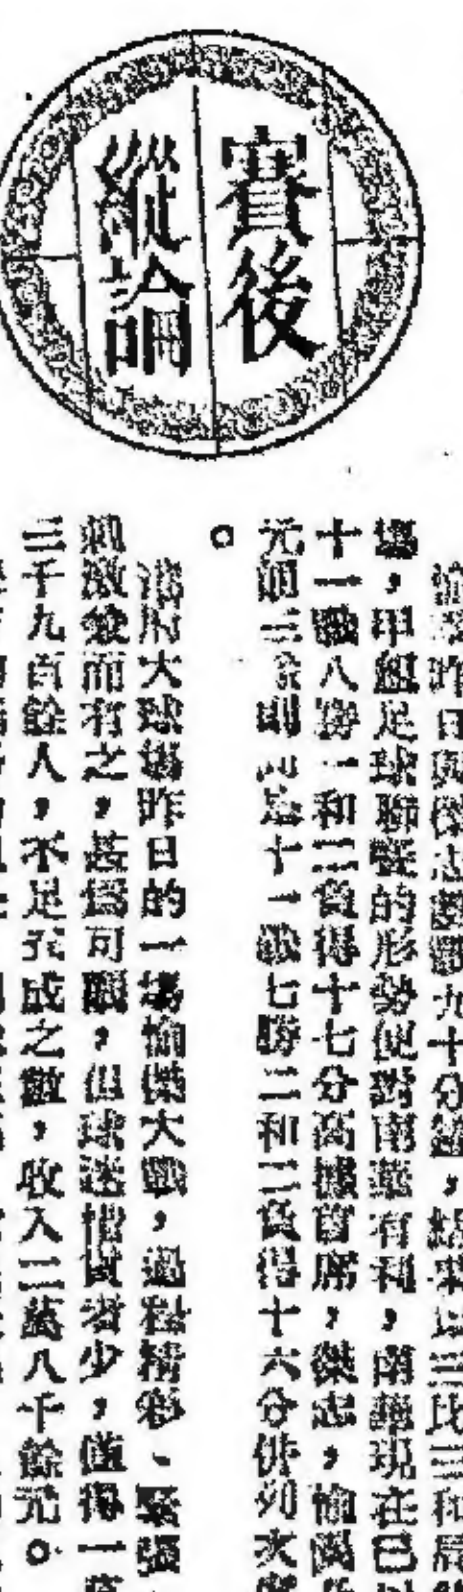 賽後
縱論
愉園昨日與傑志鏖戰九十分鐘，結果以三比三和局
場，甲組足球聯賽的形勢便對南華有利，南華現在已
十一戰八勝一和二負得十七分高據首席，傑志，愉園
元朗三家則同是十一戰七勝二和二負得十六分併列次
。
港府大球場昨日的一場愉傑大戰，過程精彩、緊張、
刺激兼而有之，甚為可觀，但球迷者少，僅得一
三千九百餘人，不足六成之數，收入二萬八千餘元。